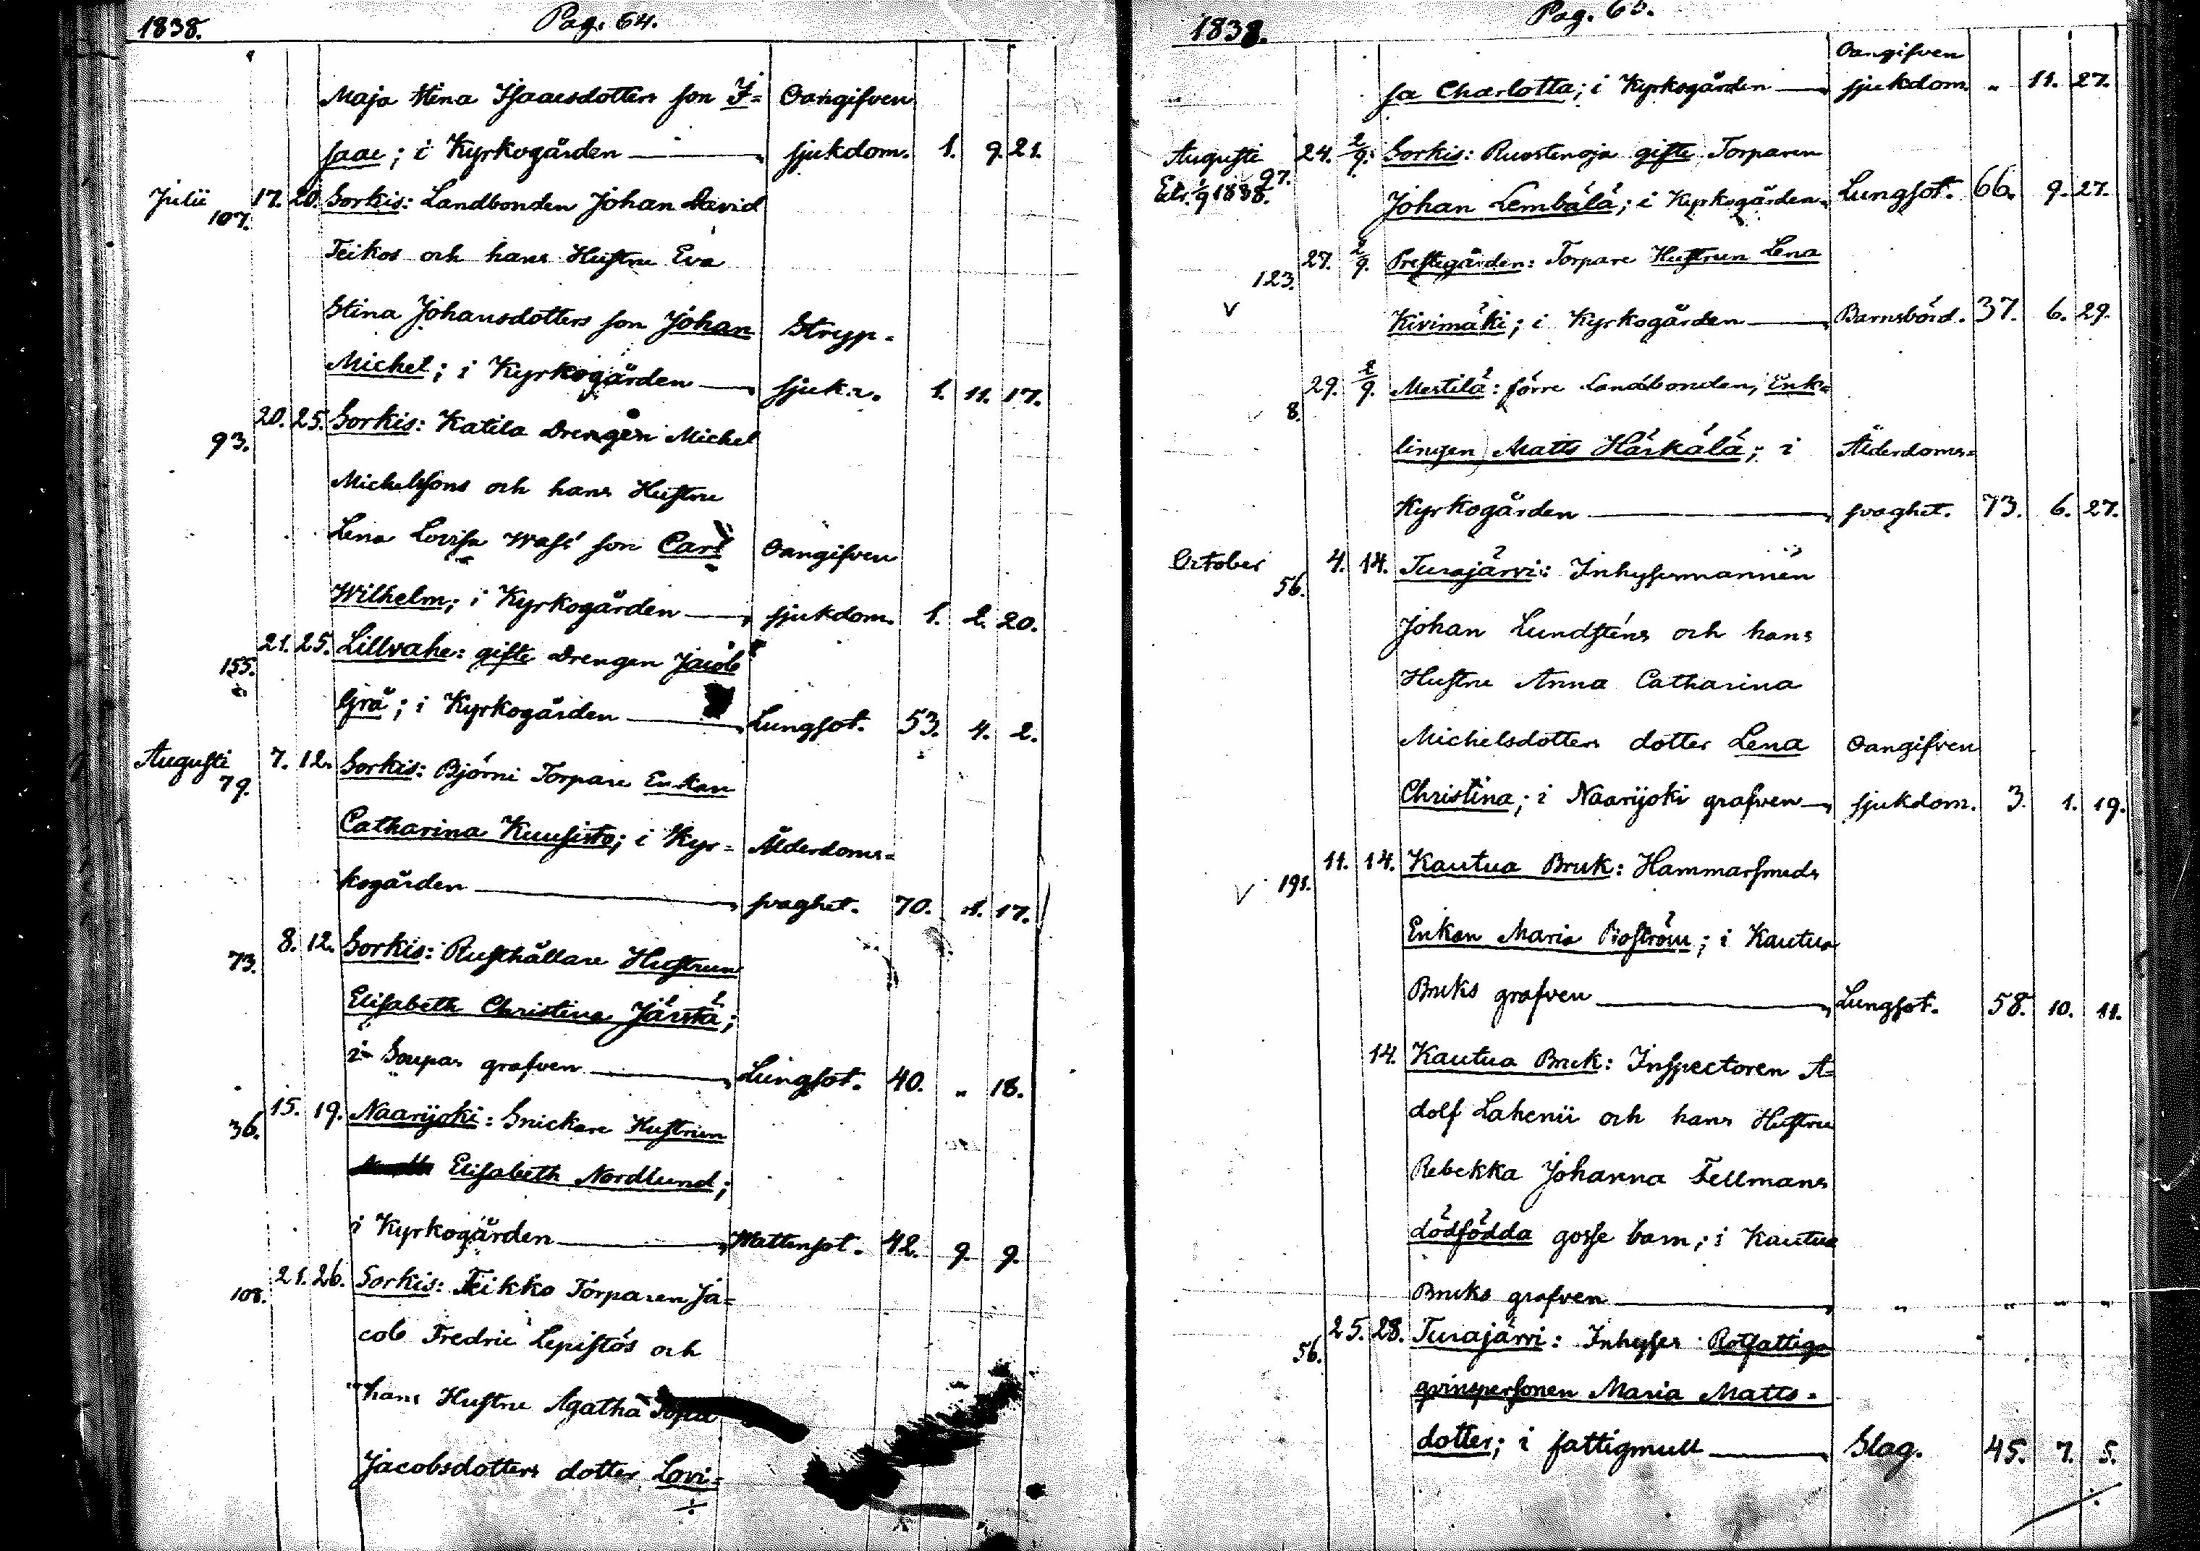 1838. Pag. 64.
Maja Stina Isaacsdotters son I= Oangifven
saac; i Kyrkogården sjukdom. 1. 9. 21.
Julii 107. 17. 20. Sorkis: Landbonden Johan David
Teikos och hans Hustru Eva
Stina Johansdotters son Johan Stryp-
Michel; i Kyrkogården sjuka. 1. 11. 17.
93. 20. 25. Sorkis: Katila Drengen Michel
Michelssons och hans Hustru
Lena Lovisa son Carl Oangifven
Wilhelm; i Kyrkogården sjukdom. 1. 2. 20.
155. 21. 25. Lillvahe: gifte Drengen Jacob
Grå; i Kyrkogården Lungsot. 53. 4. 2.
Augusti 79. 7. 12. Sorkis: Björni Torpare Enkan
Catharina Kuusisto; i Kyr= Ålderdoms=
kogården svaghet. 70. 17.
73. 8. 12. Sorkis: Rusthållare Hustrun
Elisabeth Christina Järstä;
i Sorpas grafven Lungsot. 40. " 18.
36. 15. 19. Naarijoki: Snickare Hustrun
Elisabeth Nordlund;
i Kyrkogården Wattensot. 42. 9. 9.
108. 21. 26. Sorkis: Teikko Torparen Ja=
cob Fredric Lepistös och
hans Hustru Agatha
Jacobsdotters dotter Lovi=
1838. Pag. 65.
Oangifven
sa Charlotta; i Kyrkogården sjukdom. " 11. 27.
Augusti 24. 2/9. Sorkis: Ruostenoja gifte Torparen
97. Johan Lembälä; i Kyrkogården Lungsot. 66. 9. 27.
123. 27. 2/9. Prestegården: Torpare Hustrun Lena
Kivimäki; i Kyrkogården Barnsbörd. 37. 6. 29.
8. 29. 2/9. Mestilä: förre Landbonden, Enk=
lingen Matts Härkälä; i Ålderdoms=
Kyrkogården svaghet. 73. 6. 27.
October 56. 4. 14. Turajärvi: Inhysesmannen
Johan Lundsténs och hans
Hustru Anna Catharina
Michelsdotters dotter Lena Oangifven
Christina; i Naarijoki grafven sjukdom. 3. 1. 19.
191. 11. 14. Kautua Bruk: Hammarsmeds
Enkan Maria Boström; i Kautua
Bruks grafven Lungsot. 58. 10. 11.
14. Kautua Bruk: Inspectoren A=
dolf Lahenii och hans Hustru
Rebekka Johanna Fellmans
dödfödda gosse barn; i Kautua
Bruks grafven " " " "
56. 25. 28. Turajärvi: Inhyses Rotfattige
qvinspersonen Maria Matts-
dotter; i fattigmull Slag. 45. 7. 5.